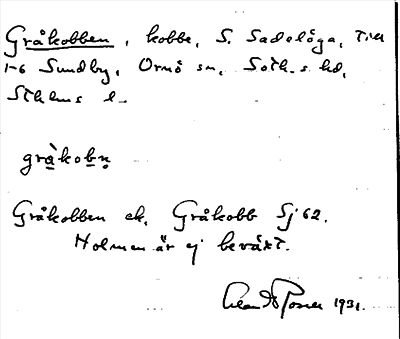 Gråkobben, kobbe, S. Sadelöga, till
1-6 Sundby, Ornö sn, Soth-s hd,
Sthlms l-
gràkobn̥
Gråkobben ek. Gråkobb Sj 62.
Holmen är ej beväxt.
1931.